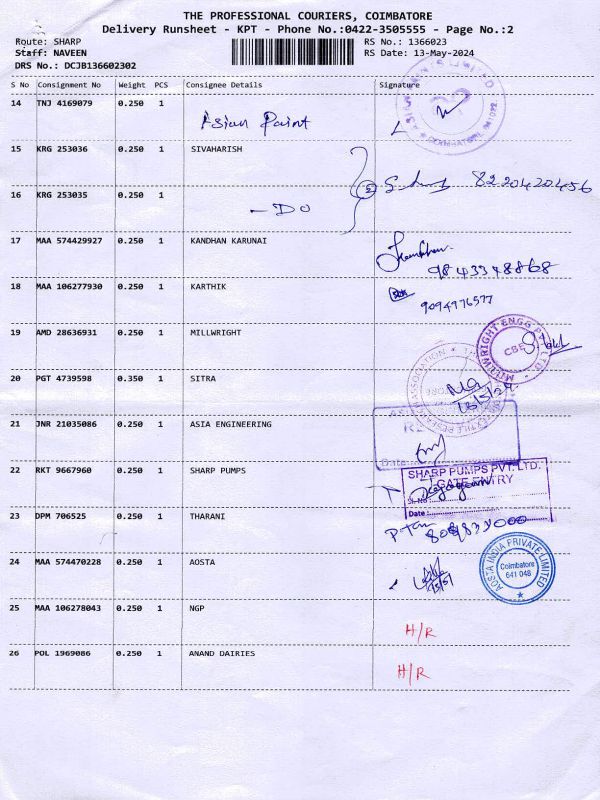 THE PROFESSIONAL COURIERS, COIMBATORE
Delivery Runsheet - KPT - Phone No.:0422-3505555 - Page No.:2
Route: SHARP RS No.: 1366023
Staff: NAVEEN RS Date: 13-May-2024
DRS No.: DCJB136602302
S No Consignment No Weight PCS Consignee Details Signature
14 TNJ 4169079 0.250 1
Asian Paint
15 KRG 253036 0.250 1 SIVAHARISH
16 KRG 253035 0.250 1
- DO 2 8220420456
17 MAA 574429927 0.250 1 KANDHAN KARUNAI
9843348868
18 MAA 106277930 0.250 1 KARTHIK
9094976577
19 AMD 28636931 0.250 1 MILLWRIGHT
MILLWRIGHT ENGG
CBE
20 PGT 4739598 0.350 1 SITRA
13/5/24
21 JNR 21035086 0.250 1 ASIA ENGINEERING
Date:
22 RKT 9667960 0.250 1 SHARP PUMPS
SHARP PUMPS PVT. LTD.
GATE ENTRY
Date :
23 DPM 706525 0.250 1 THARANI
24 MAA 574470228 0.250 1 AOSTA
AOSTA INDIA PRIVATE LIMITED
Coimbatore
641 048
25 MAA 106278043 0.250 1 NGP
H/R
26 POL 1969086 0.250 1 ANAND DAIRIES
H/R